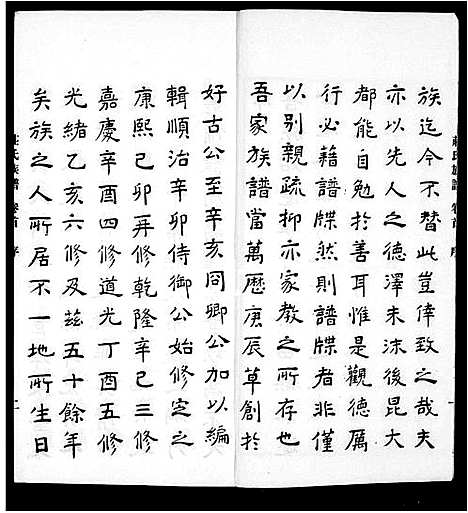 莊氏族譜 卷首 序 一
族迄今不替此豈倖致之哉夫
亦以先人之德澤未沫後昆大
都能自勉於善耳惟是觀德厲
行必藉譜牒然則譜牒者非僅
以別親疏抑亦家教之所存也
吾家族譜當萬曆庚辰草創於
好古公至辛亥冏卿公加以編
輯順治辛卯侍御公始修定之
康熙己卯再修乾隆辛巳三修
嘉慶辛酉四修道光丁酉五修
光緒乙亥六修及茲五十餘年
矣族之人所居不一地所生日
莊氏族譜 卷首 序 二